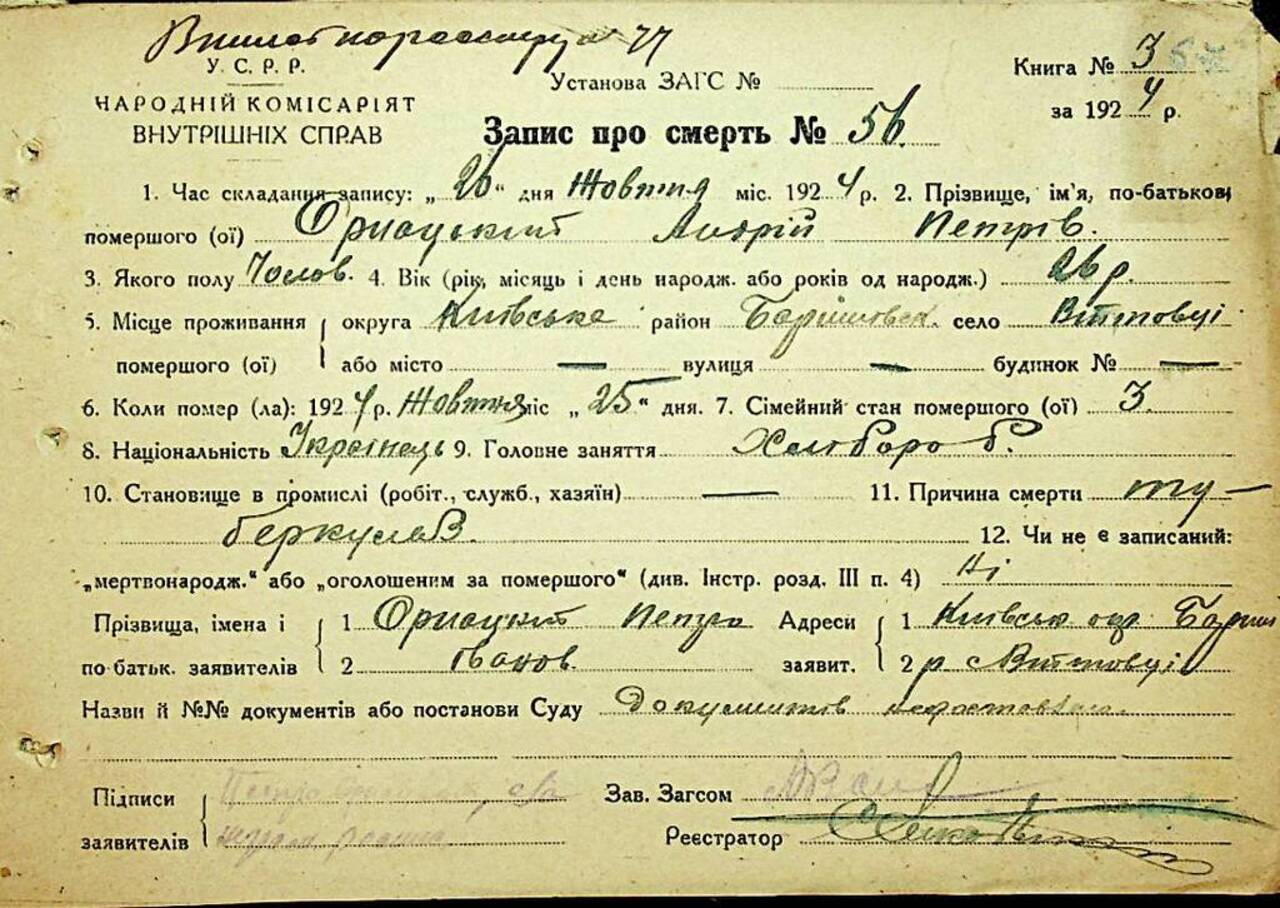 У. С. Р. Р.
НАРОДНІЙ КОМІСАРІЯТ
ВНУТРІШНІХ СПРАВ
Установа ЗАГС №
Книга № 3
за 1924 р.
Запис про смерть № 56.
1. Час складання запису: „26“ дня Жовтня міс. 1924 р. 2. Прізвище, ім'я, по-батькові
помершого (ої) Андрій Петрів.
3. Якого полу Чолов. 4. Вік (рік, місяць і день народж. або років од народж.) 26 р.
5. Місце проживання округа Київське район Баришовск. село
помершого (ої) або місто — вулиця — будинок № —
6. Коли помер (ла): 1924 р. Жовтня міс „25“ дня. 7. Сімейний стан помершого (ої) 3.
8. Національність Українець 9. Головне заняття Хлібороб.
10. Становище в промислі (робіт., служб., хазяїн) — 11. Причина смерти ту-
беркульоз. 12. Чи не є записаний:
„мертвонародж.“ або „оголошеним за помершого“ (див. Інстр. розд. III п. 4) Ні
Прізвища, імена і 1 Петро Адреси 1 Київськ окр Бариш
по батьк. заявителів 2 Іванов. заявит. 2 р с
Назви й №№ документів або постанови Суду Документів
Підписи Зав. Загсом
заявителів Реєстратор